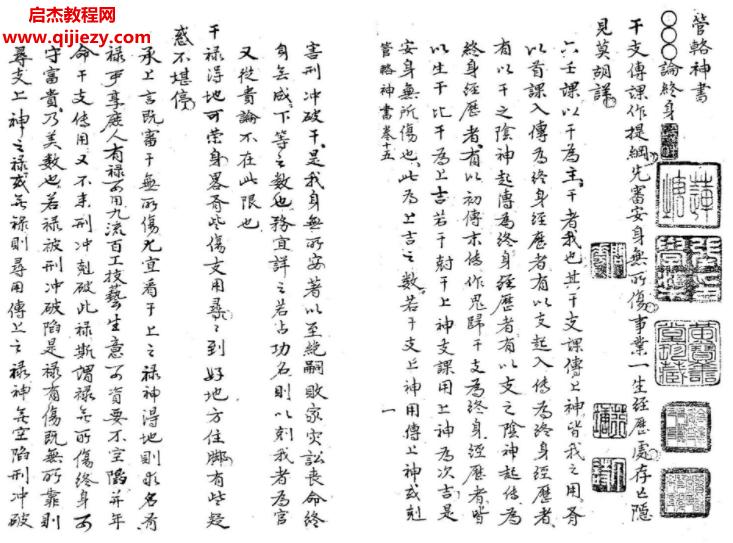 启杰教程网
www.qijiezy.com
管輅神書
○○○論終身
干支傳課作提綱先審安身無所傷事業一生經歷處存亡隱
見莫胡詳
六壬課以干為主干者我也其干支課傳上神皆我之用有
以首課入傳為終身經歷者有以支起入傳為終身經歷者
有以干之陰神起傳為終身經歷者有以支之陰神起傳為
終身經歷者有以初傳末傳作鬼歸干支為終身經歷者皆
以生干比干為上吉若干尅干上神支課用上神為次吉是
安身無所傷也此為上吉之數若干支上神用傳上神或刻
管輅神書卷十五
一
害刑冲破干是我身無所安著以至絕嗣敗家灾訟喪命終
身無成下等之數也務宜詳之若占功名則以刻我者為官
又從貴論不在此限也
干祿得地可榮身畧有些傷支用尋尋到好地方住脚有些疑
惑不堪停
承上言既審干無所傷尤宜看干上之祿神得地則求名有
祿可享庶人有祿可用九流百工技藝生意可資要不空陷并年
命干支傳用又不来刑冲剋破此祿斯謂祿無所傷終身可
守富貴乃美數也若祿被刑冲破陷是祿有傷既無所靠則
尋支上神之祿或無祿則尋用傳上之祿神無空陷刑冲破